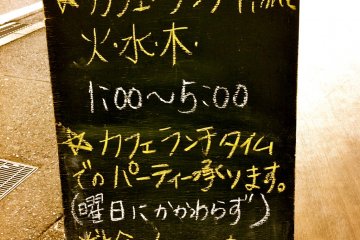 ☆カフェ・ランチ
火・水・木・
1:00〜5:00
☆カフェランチタイム
でのパーティー承ります。
(曜日にかかわらず)